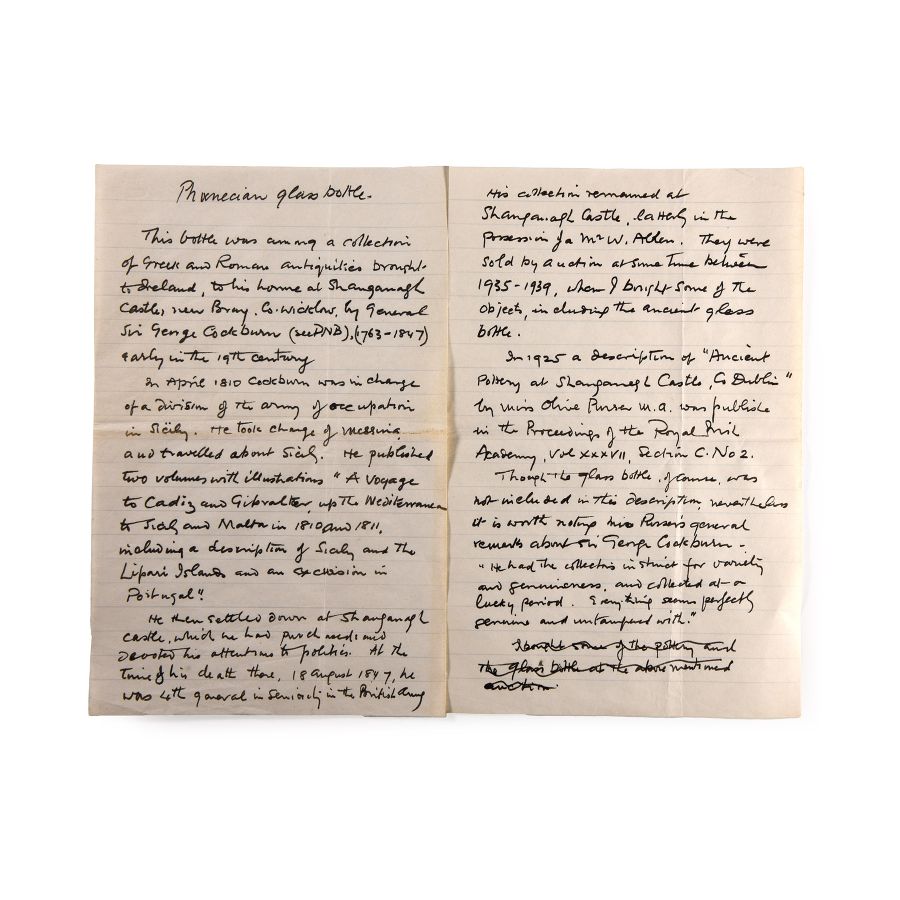 Phœnecian glass bottle.
This bottle was among a collection
of Greek and Roman antiquities brought
to Ireland, to his home at Shanganagh
Castle, near Bray, Co. Wicklow, by General
Sir George Cockburn (see DNB), (1763-1847)
early in the 19th century
In April 1810 Cockburn was in charge
of a division of the army of occupation
in Sicily. He took charge of Messina,
and travelled about Sicily. He published
two volumes with illustrations "A Voyage
to Cadiz and Gibralter, up the Mediterranean
to Sicily and Malta in 1810 and 1811,
including a description of Sicily and the
Lipari Islands and an excursion in
Portugal".
He then settled down at Shanganagh
castle, which he had purchased and
devoted his attentions to politics. At the
time of his death there, 18 August 1847, he
was 4th general in seniority in the British Army
His collection remained at
Shanganagh Castle, latterly in the
possession of a Mr W. Allen. They were
sold by auction at some time between
1935-1939, when I bought some of the
objects, including the ancient glass
bottle.
In 1925 a description of "Ancient
Pottery at Shanganagh Castle, Co Dublin"
by Miss Olive Purser M.A. was publishe
in the Proceedings of the Royal Irish
Academy, Vol XXXVII, Section C. No 2.
Though the glass bottle, of course, was
not included in this description, nevertheless
it is worth noting Miss Purser's general
remarks about Sir George Cockburn -
"He had the collectors instinct for variety
and genuineness, and collected at a
lucky period. Everything seems perfectly
genuine and untampered with."
I bought some of the pottery and
the glass bottle at the above mentioned
auction.